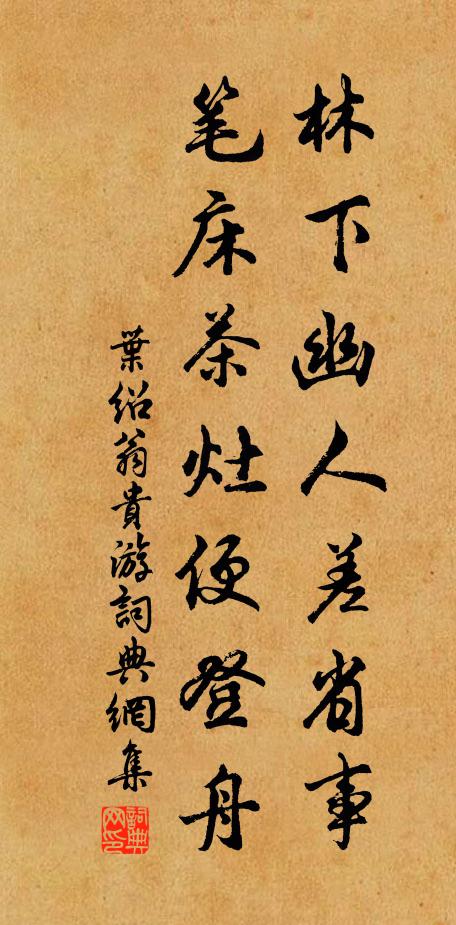 林下幽人差省事
笔床茶灶便登舟
葉绍翁貴游詞典網集
詞典网印